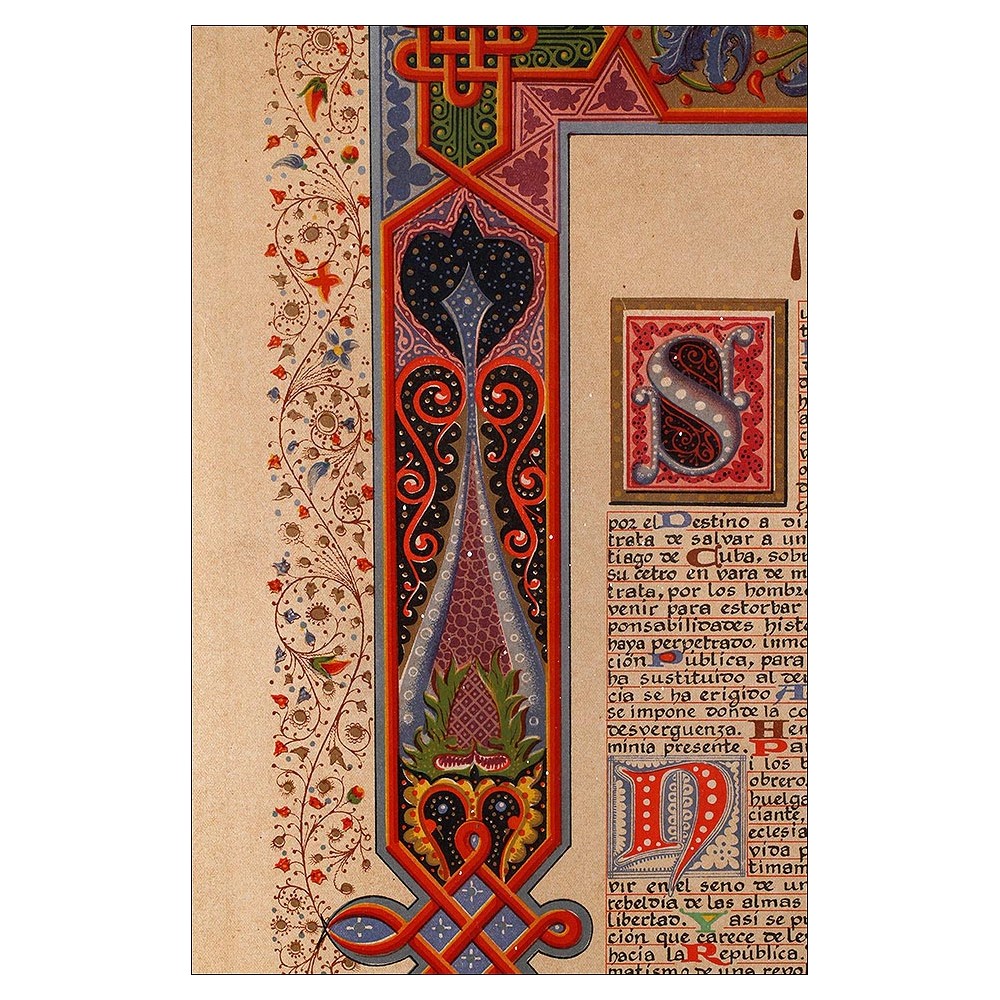 ¡
S
por el Destino a di
trata de salvar a un
tiago de Cuba, sobr
su cetro en vara de m
trata, por los hombre
venir para estorbar
ponsabilidades histo
haya perpetrado. inmo
ción Pública, para
ha sustituido al der
cia se ha erigido A
se impone donde la co
desvergüenza. Hen
minia presente. Pa
N i los b
obrero
huelga
ciante,
eclesia
vida p
timam
vir en el seno de un
rebeldía de las almas
libertad. Y así se pu
ción que carece de le
hacia la República.
matismo de una revol